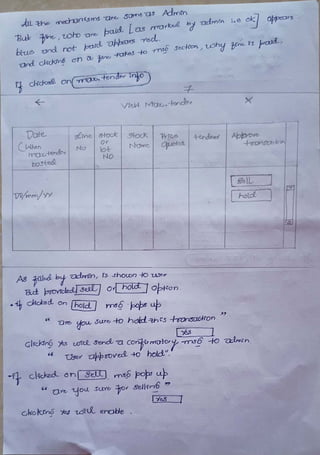 All the mechanisms are same as Admin
But fine, who are paid [as marked by admin i.e ok] appears
blue and not paid appears red.
and clicking on a fine takes to msg section, why fine is paid.
If clicked on [max. tender info]
← Visit Max. tender ×
Date (When max. tender posted | Slno No | stock or lot NO | Stock Name | Price quoted | tenderer | Approve transaction
DD/mm/yy
sell
hold
As filled by admin, is shown to user
But provided [sell] or [hold] option.
• If clicked on [hold] msg pops up
" are you sure to hold this transaction "
Yes
Clicking Yes will send a confirmatory msg to admin
" User approved to hold".
- If clicked on [sell] msg pops up
" are you sure for selling "
Yes
clicking yes will enable .